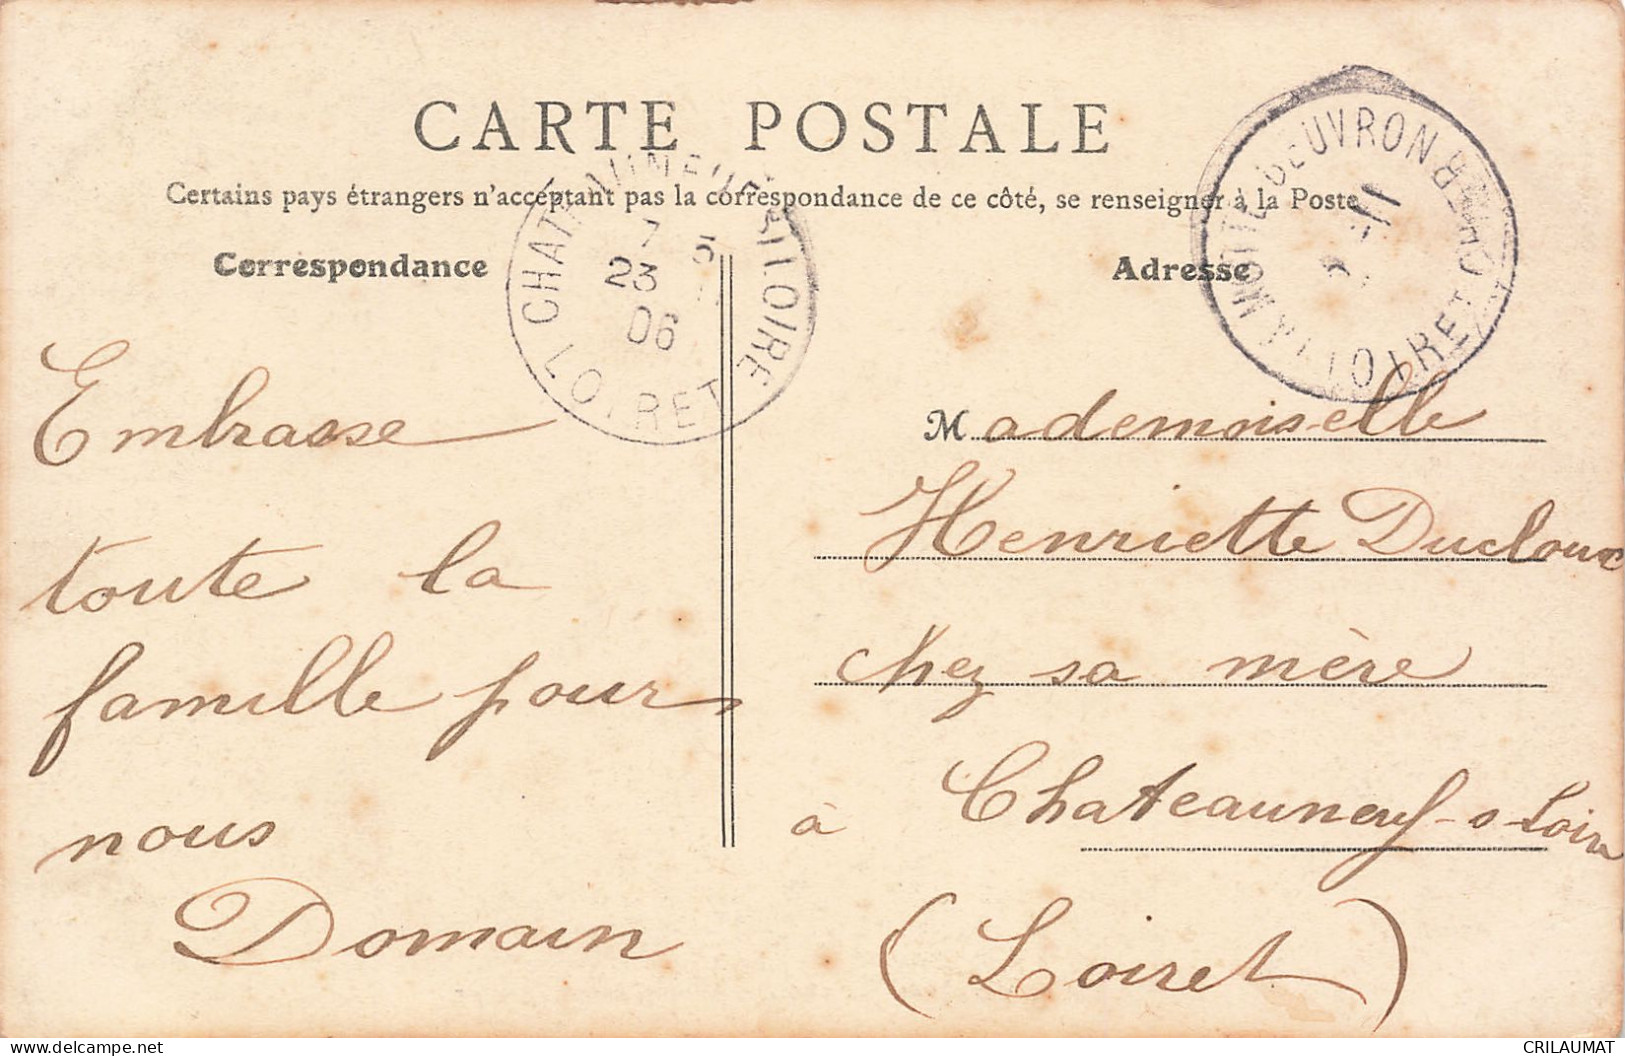 CARTE POSTALE
Certains pays étrangers n'acceptant pas la correspondance de ce côté, se renseigner à la Poste
Correspondance
Adresse
CHATEAUNEUF S LOIRE
7 5
23 11
06
LOIRET
LAMOTTE BEUVRON
LOIRET
Embrasse
toute la
famille pour
nous
Domain
Mademoiselle
Henriette Ducloux
chez sa mère
à Chateauneuf-s-Loire
(Loiret)
delcampe.net
CRILAUMAT